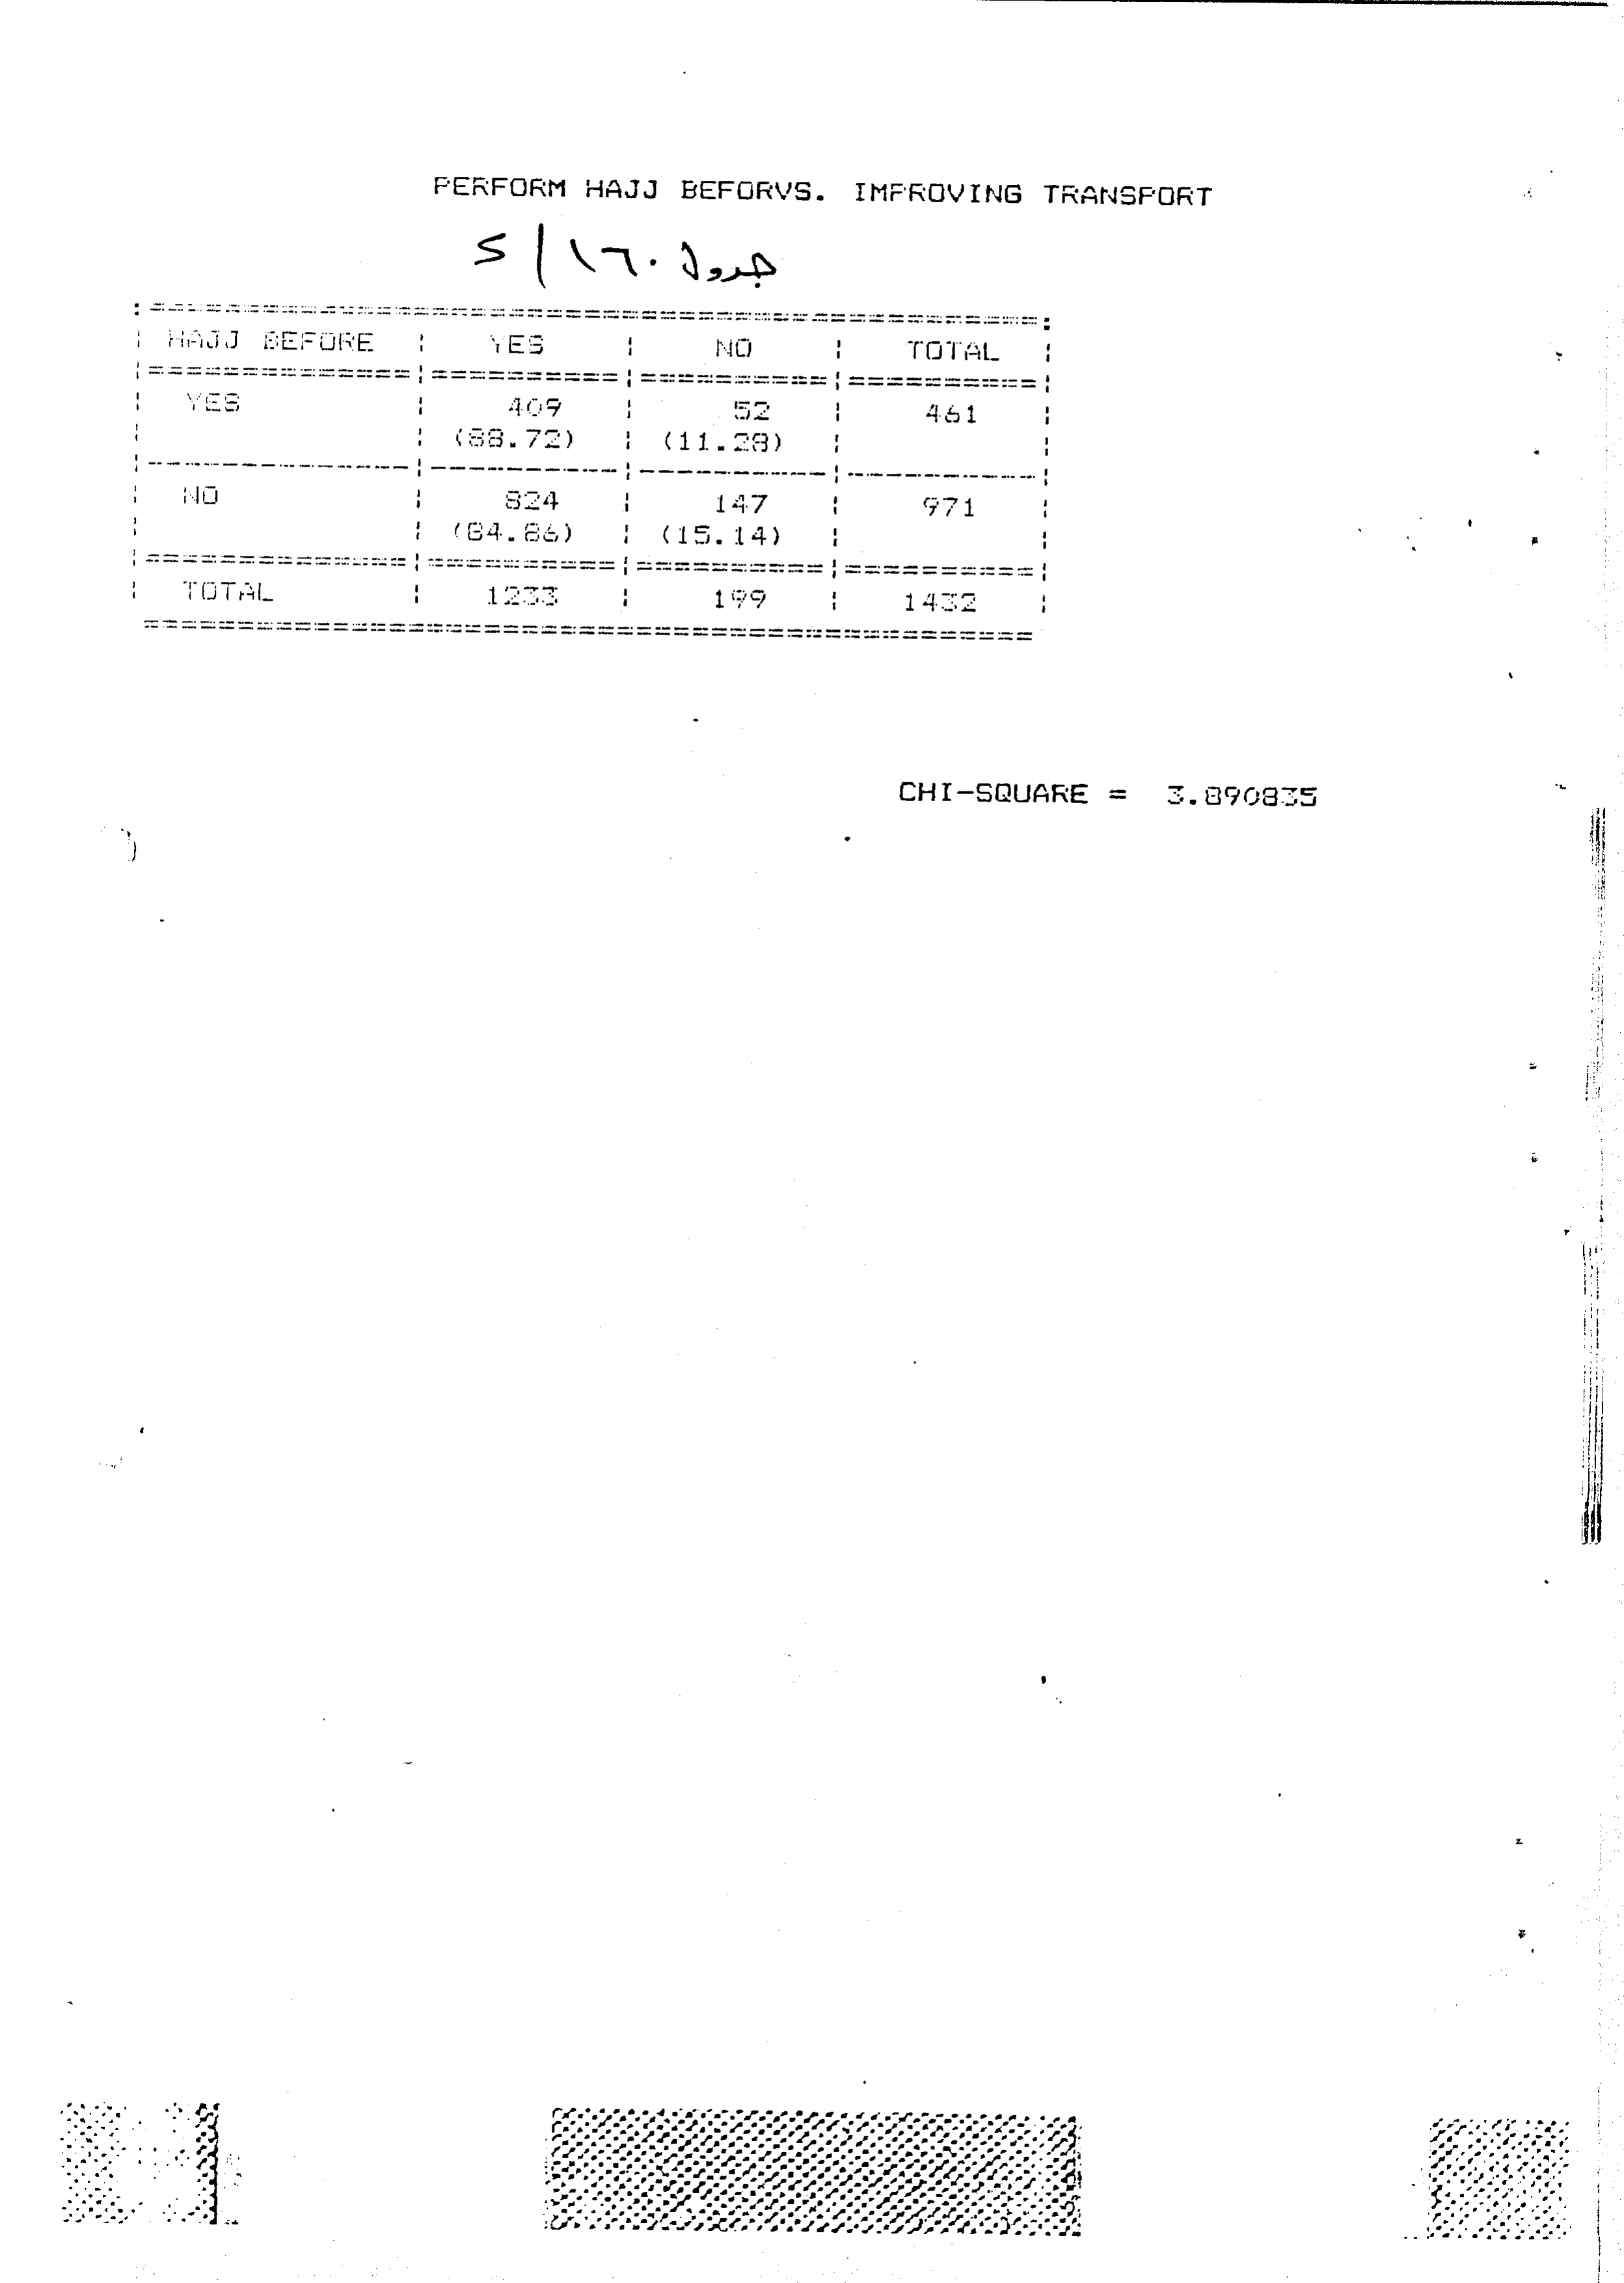 PERFORM HAJJ BEFORVS. IMPROVING TRANSPORT
جدول ١٦٠/د
HAJJ BEFORE YES NO TOTAL
YES 409 52 461
(88.72) (11.28)
NO 824 147 971
(84.86) (15.14)
TOTAL 1233 199 1432
CHI-SQUARE = 3.890835